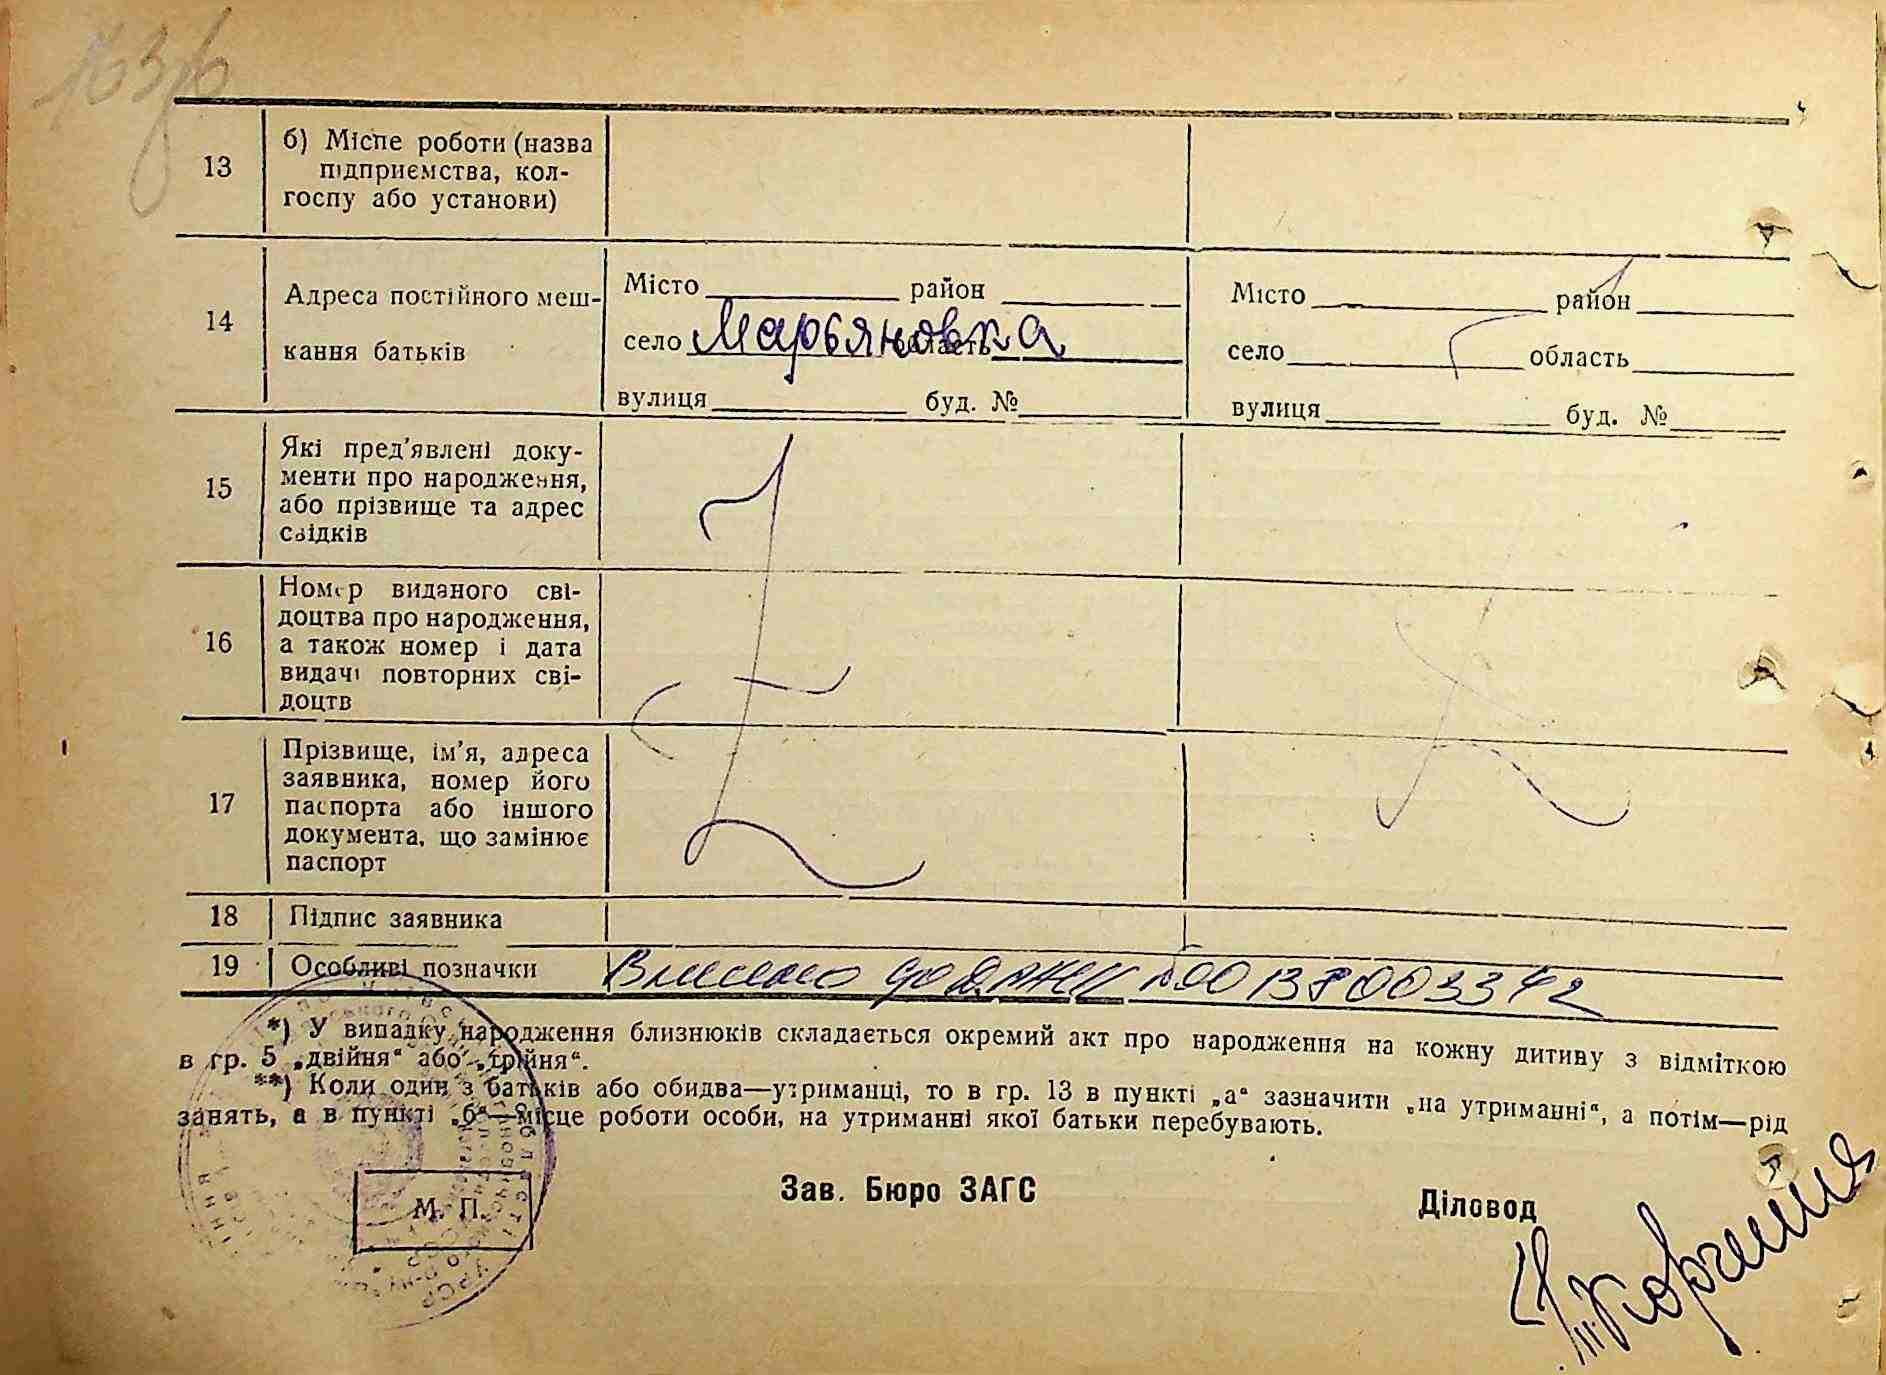 13 б) Місце роботи (назва
підприємства, кол-
госпу або установи)
14 Адреса постійного меш-
кання батьків
Місто район
село Марьяновка область
вулиця буд. №
Місто район
село область
вулиця буд. №
15 Які пред'явлені доку-
менти про народження,
або прізвище та адрес
свідків
16 Номер виданого сві-
доцтва про народження,
а також номер і дата
видачі повторних сві-
доцтв
17 Прізвище, ім'я, адреса
заявника, номер його
паспорта або іншого
документа, що замінює
паспорт
18 Підпис заявника
19 Особливі позначки Внесено до ДРАЦС №00138003342
*) У випадку народження близнюків складається окремий акт про народження на кожну дитину з відміткою
в гр. 5 „двійня“ або „трійня“.
**) Коли один з батьків або обидва—утриманці, то в гр. 13 в пункті „а“ зазначити „на утриманні“, а потім—рід
занять, а в пункті „б“—місце роботи особи, на утриманні якої батьки перебувають.
М. П.
Зав. Бюро ЗАГС
Діловод